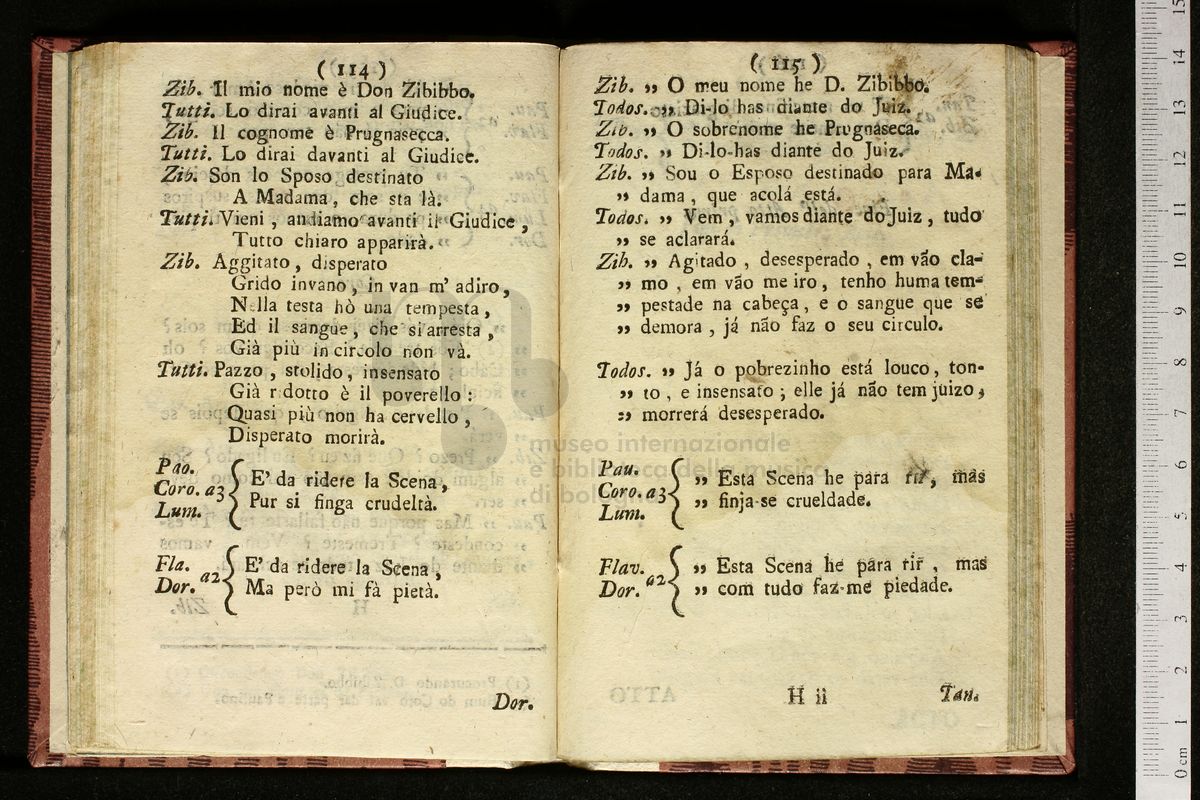 ( 114 )
Zib. Il mio nome è Don Zibibbo.
Tutti. Lo dirai avanti al Giudice.
Zib. Il cognome è Prugnasecca.
Tutti. Lo dirai davanti al Giudice.
Zib. Son lo Sposo destinato
A Madama, che sta là.
Tutti. Vieni, andiamo avanti il Giudice,
Tutto chiaro apparirà.
Zib. Aggitato, disperato
Grido invano, in van m' adiro,
Nella testa hò una tempesta,
Ed il sangue, che si arresta,
Già più in circolo non và.
Tutti. Pazzo, stolido, insensato
Già ridotto è il poverello:
Quasi più non ha cervello,
Disperato morirà.
Pao.
Coro. a3
Lum.
E' da ridere la Scena,
Pur si finga crudeltà.
Fla.
Dor. a2
E' da ridere la Scena,
Ma però mi fà pietà.
Dor.
( 115 )
Zib. ,, O meu nome he D. Zibibbo.
Todos. ,, Di-lo has diante do Juiz.
Zib. ,, O sobrenome he Prugnaseca.
Todos. ,, Di-lo-has diante do Juiz.
Zib. ,, Sou o Esposo destinado para Ma-
,, dama, que acolá está.
Todos. ,, Vem, vamos diante do Juiz, tudo
,, se aclarará.
Zib. ,, Agitado, desesperado, em vão cla-
,, mo, em vão me iro, tenho huma tem-
,, pestade na cabeça, e o sangue que se
,, demora, já não faz o seu circulo.
Todos. ,, Já o pobrezinho está louco, ton-
,, to, e insensato; elle já não tem juizo,
,, morrerá desesperado.
Pau.
Coro. a3
Lum.
,, Esta Scena he para rir, mas
,, finja-se crueldade.
Flav.
Dor. a2
,, Esta Scena he para rir, mas
,, com tudo faz-me piedade.
H ii
Tan.
museo internazionale
e biblioteca della musica
di bologna
0 cm 1 2 3 4 5 6 7 8 9 10 11 12 13 14 15